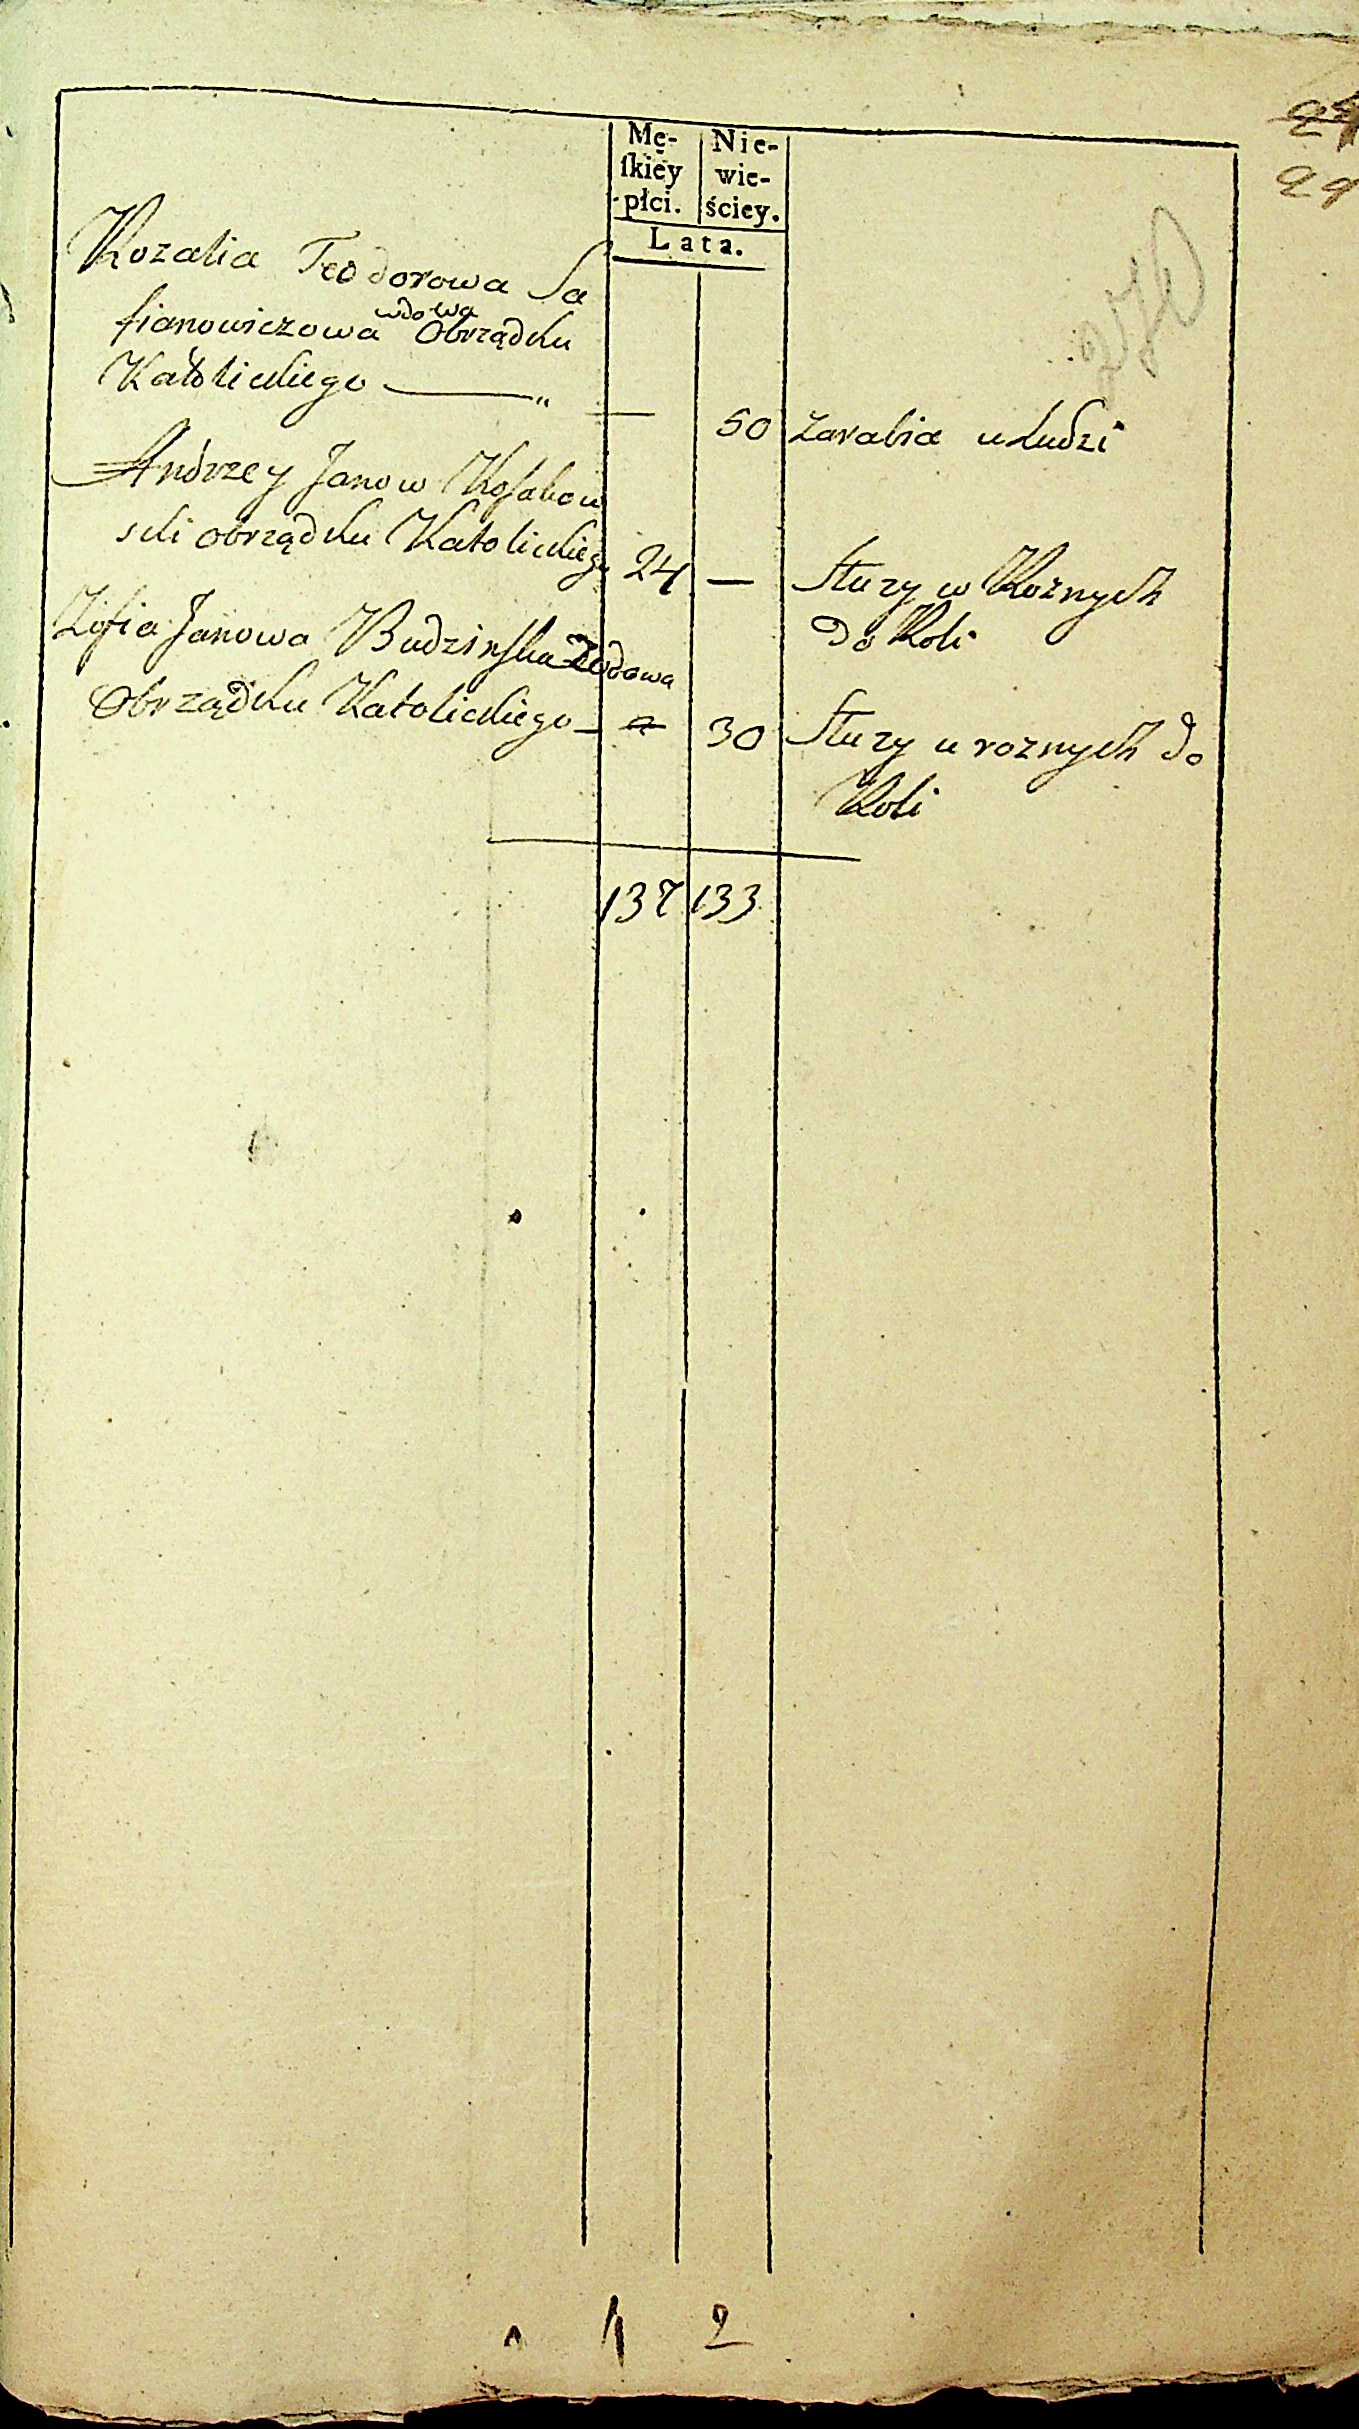 Mę-
ſkiey
płci.
Nie-
wie-
ściey.
Lata.
29
Rozalia Teodorowa Sa
fianowiczowa wdowa Obrządku
Katolickiego — 50 zarabia u Ludzi
Andrzey Janow Kosakow
ski obrządku Katolickiego 24 — Służy w Rożnych
do Roli
Zofia Janowa Budzinska Wdowa
Obrządku Katolickiego — 30 Służy u roznych do
Roli
137 133
1 2